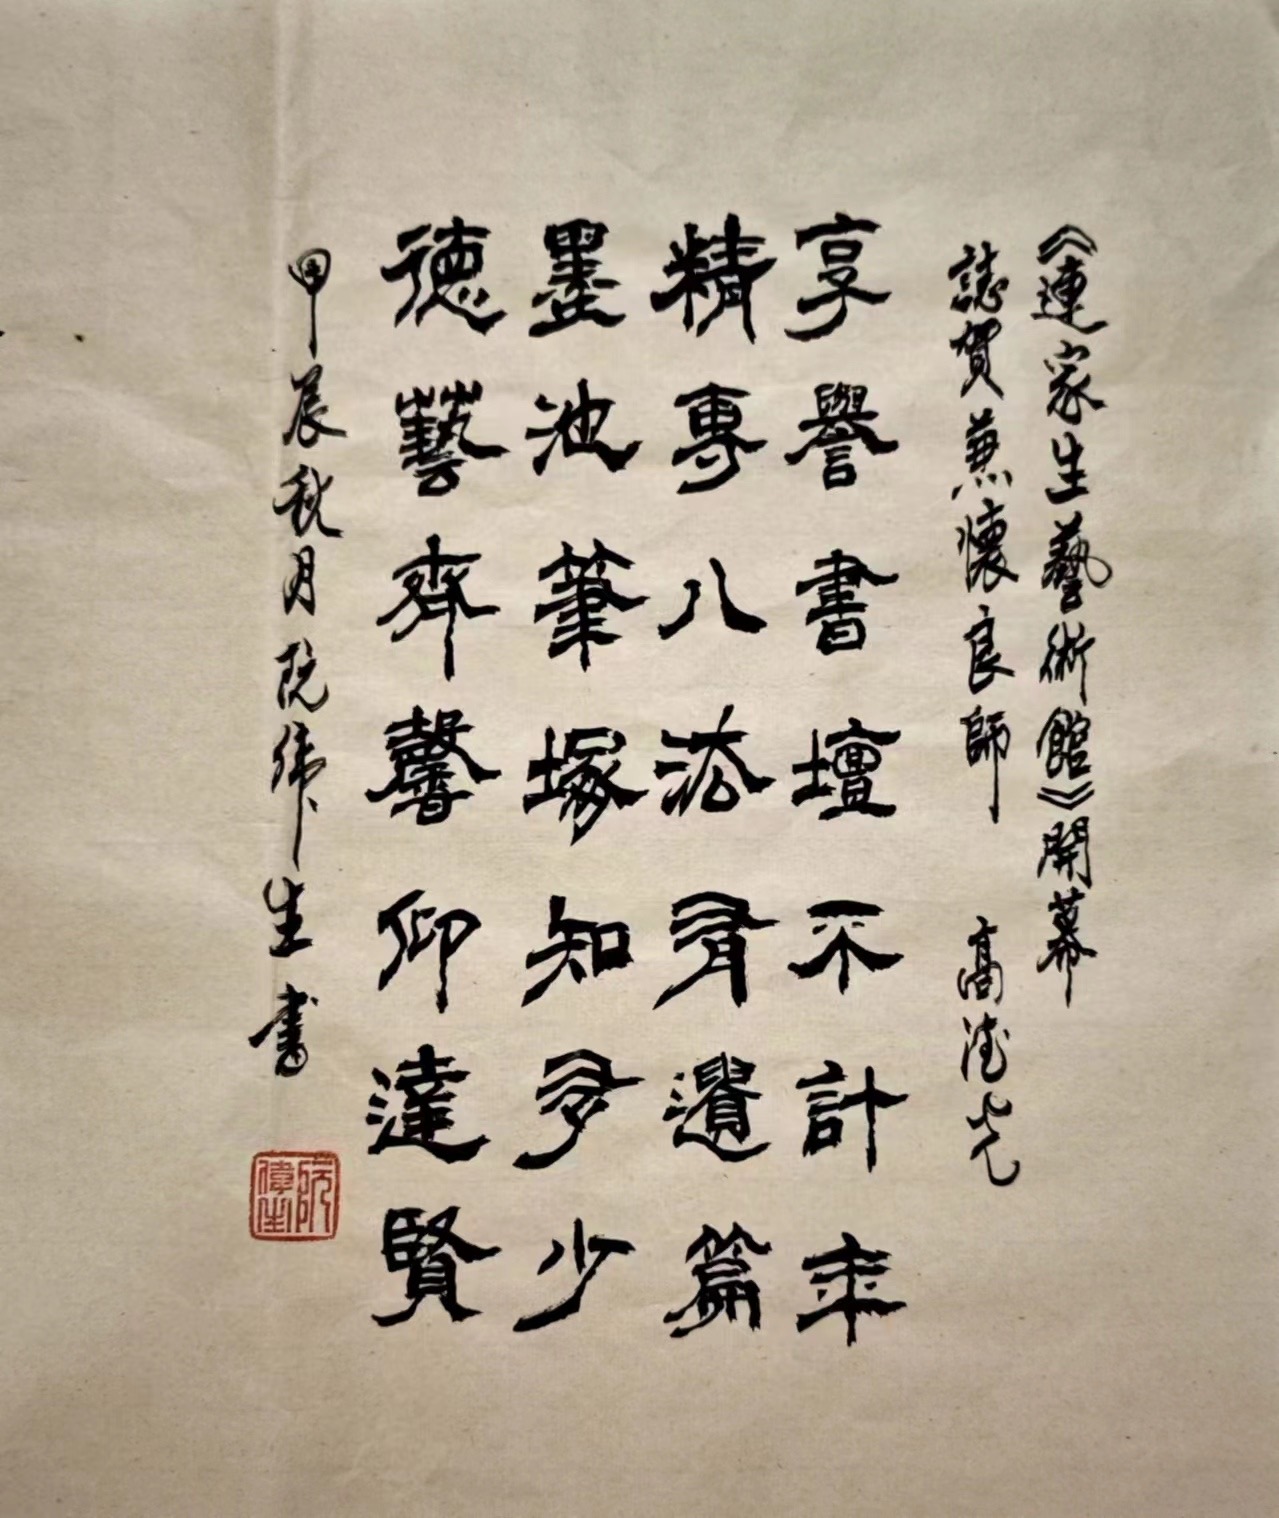 《連家生藝術館》開幕
誌賀兼懷良師 高德光
享譽書壇不計年
精專八法有遺篇
墨池筆塚知多少
德藝齊馨仰達賢
甲辰秋月阮偉生書
阮偉生